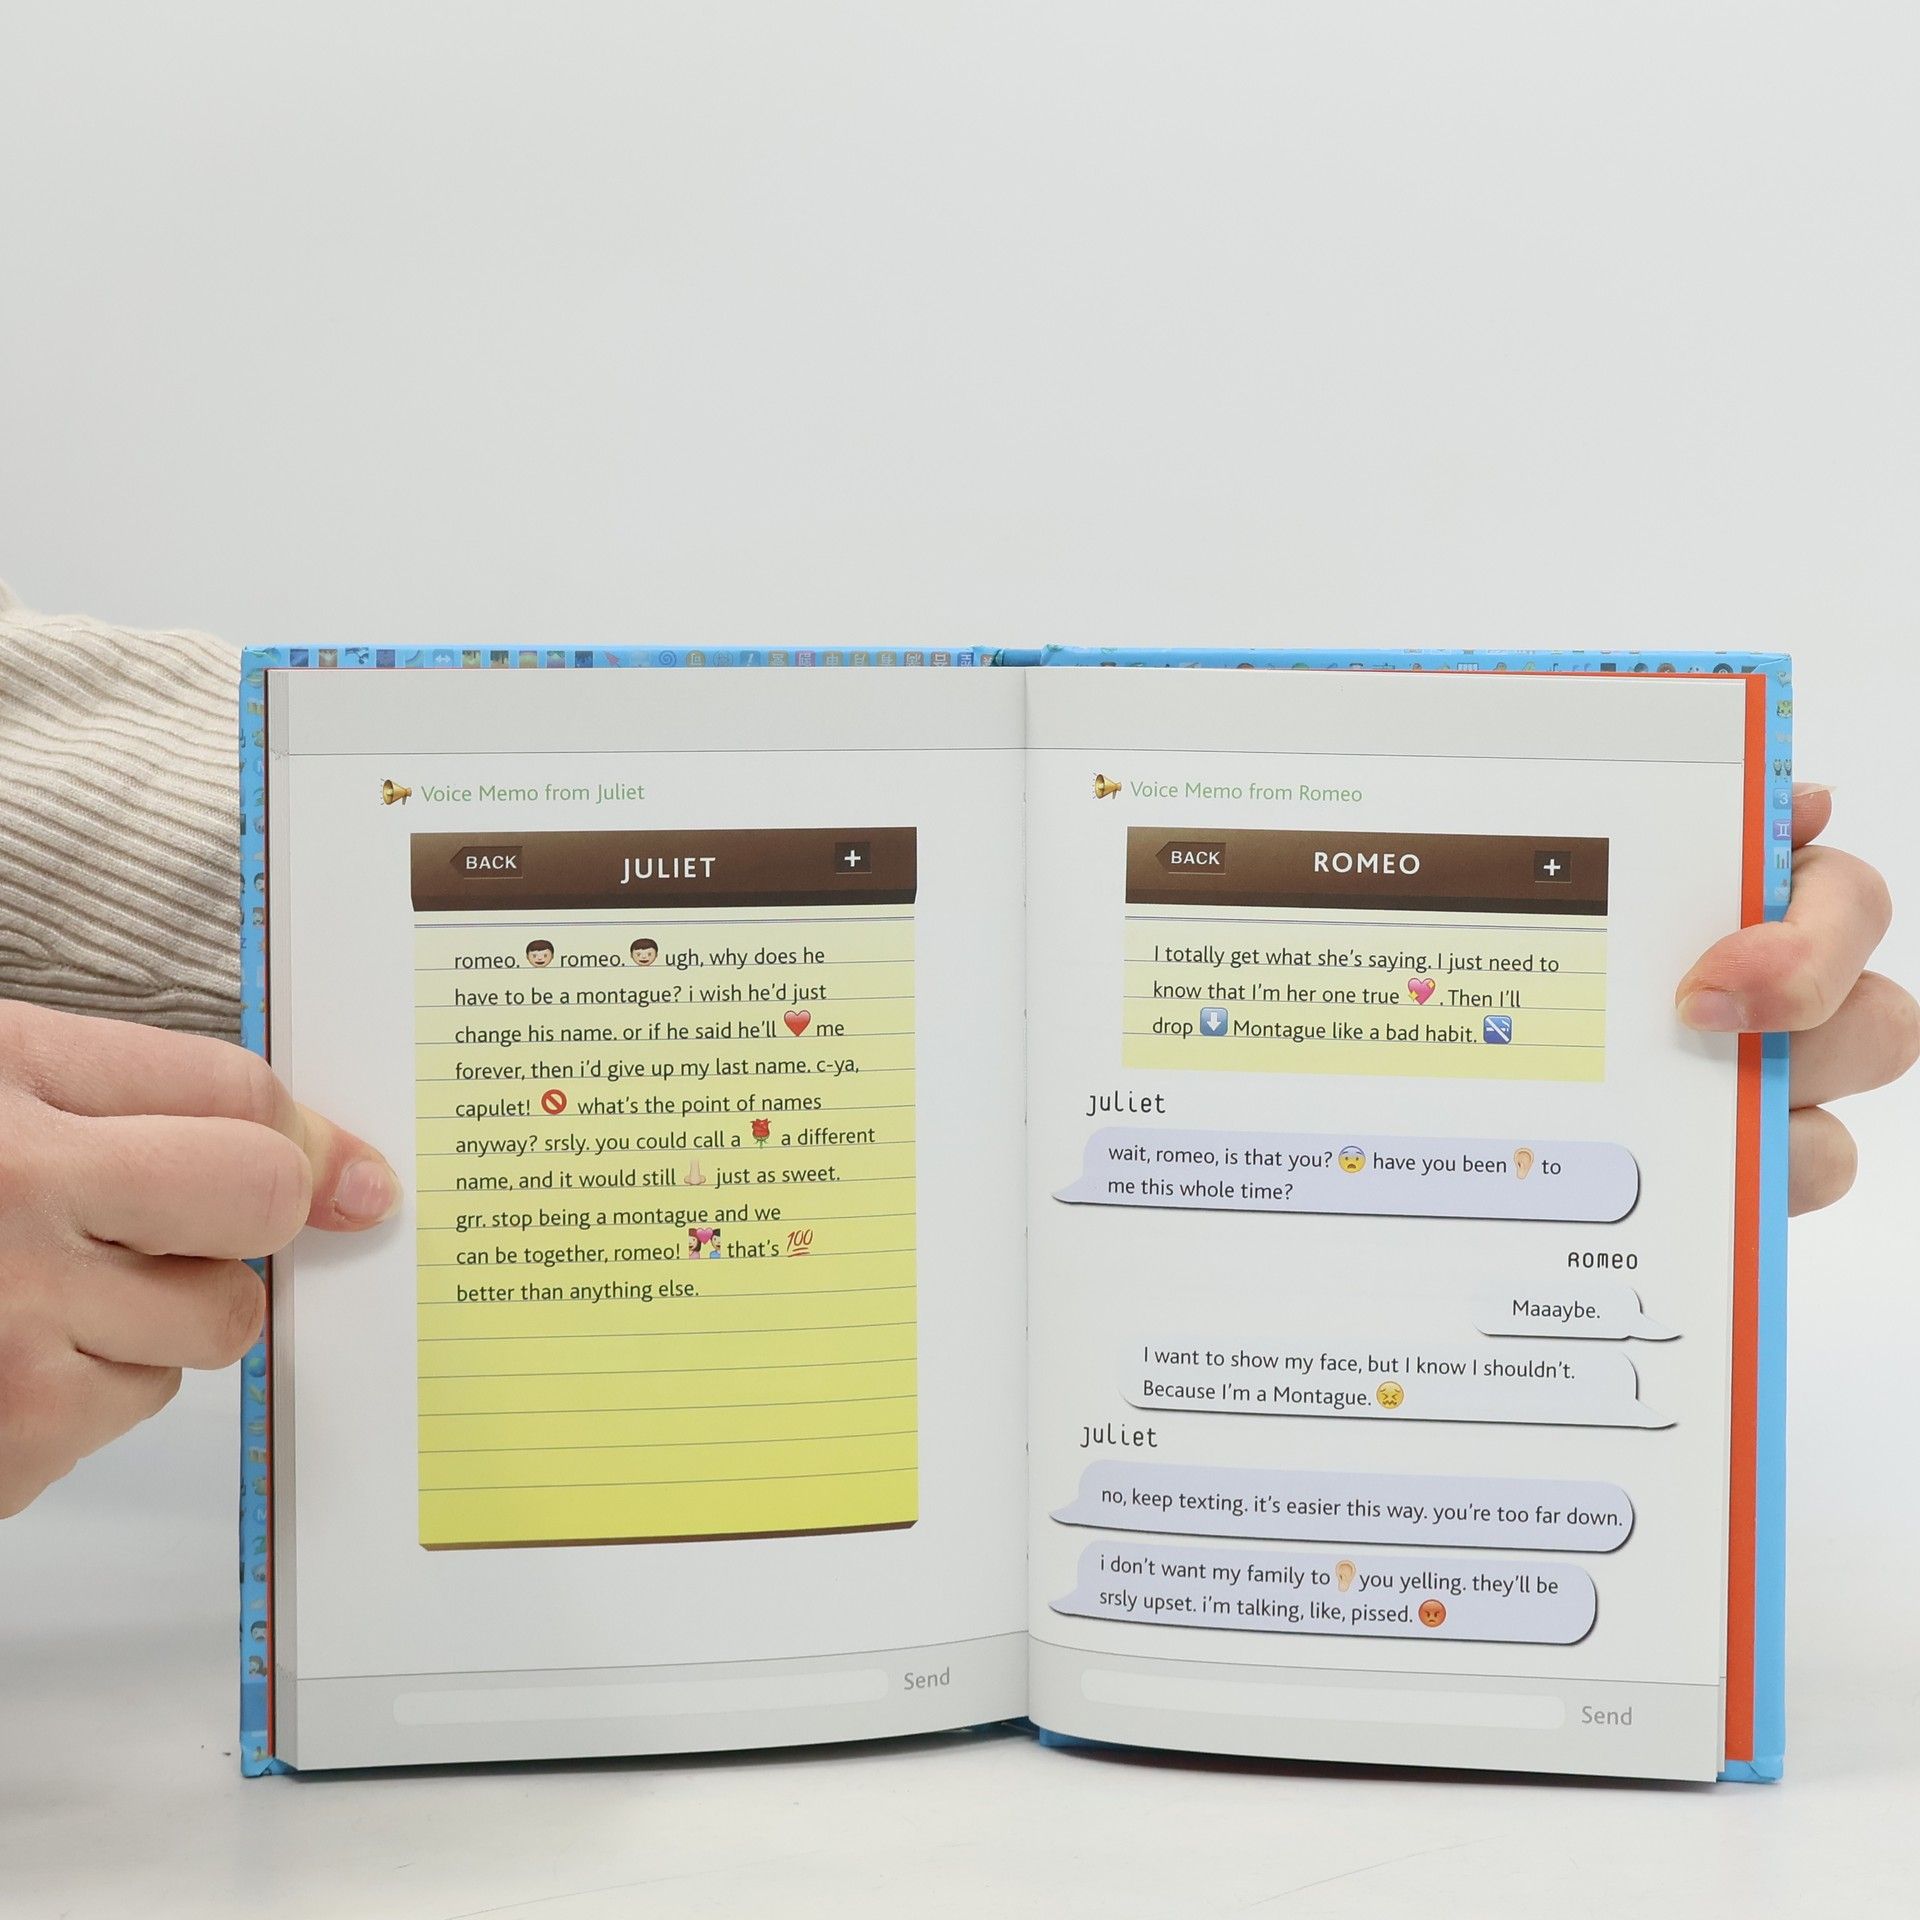 Voice Memo from Juliet
BACK
JULIET
+
romeo. 👦 romeo. 👦 ugh, why does he
have to be a montague? i wish he'd just
change his name. or if he said he'll ❤️ me
forever, then i'd give up my last name. c-ya,
capulet! 🚫 what's the point of names
anyway? srsly. you could call a 🌹 a different
name, and it would still 👃 just as sweet.
grr. stop being a montague and we
can be together, romeo! 💑 that's 💯
better than anything else.
Send
Voice Memo from Romeo
BACK
ROMEO
+
I totally get what she's saying. I just need to
know that I'm her one true 💖. Then I'll
drop ⬇️ Montague like a bad habit. 🚭
juliet
wait, romeo, is that you? 😨 have you been 👂 to
me this whole time?
Romeo
Maaaybe.
I want to show my face, but I know I shouldn't.
Because I'm a Montague. 😖
juliet
no, keep texting. it's easier this way. you're too far down.
i don't want my family to 👂 you yelling. they'll be
srsly upset. i'm talking, like, pissed. 😡
Send